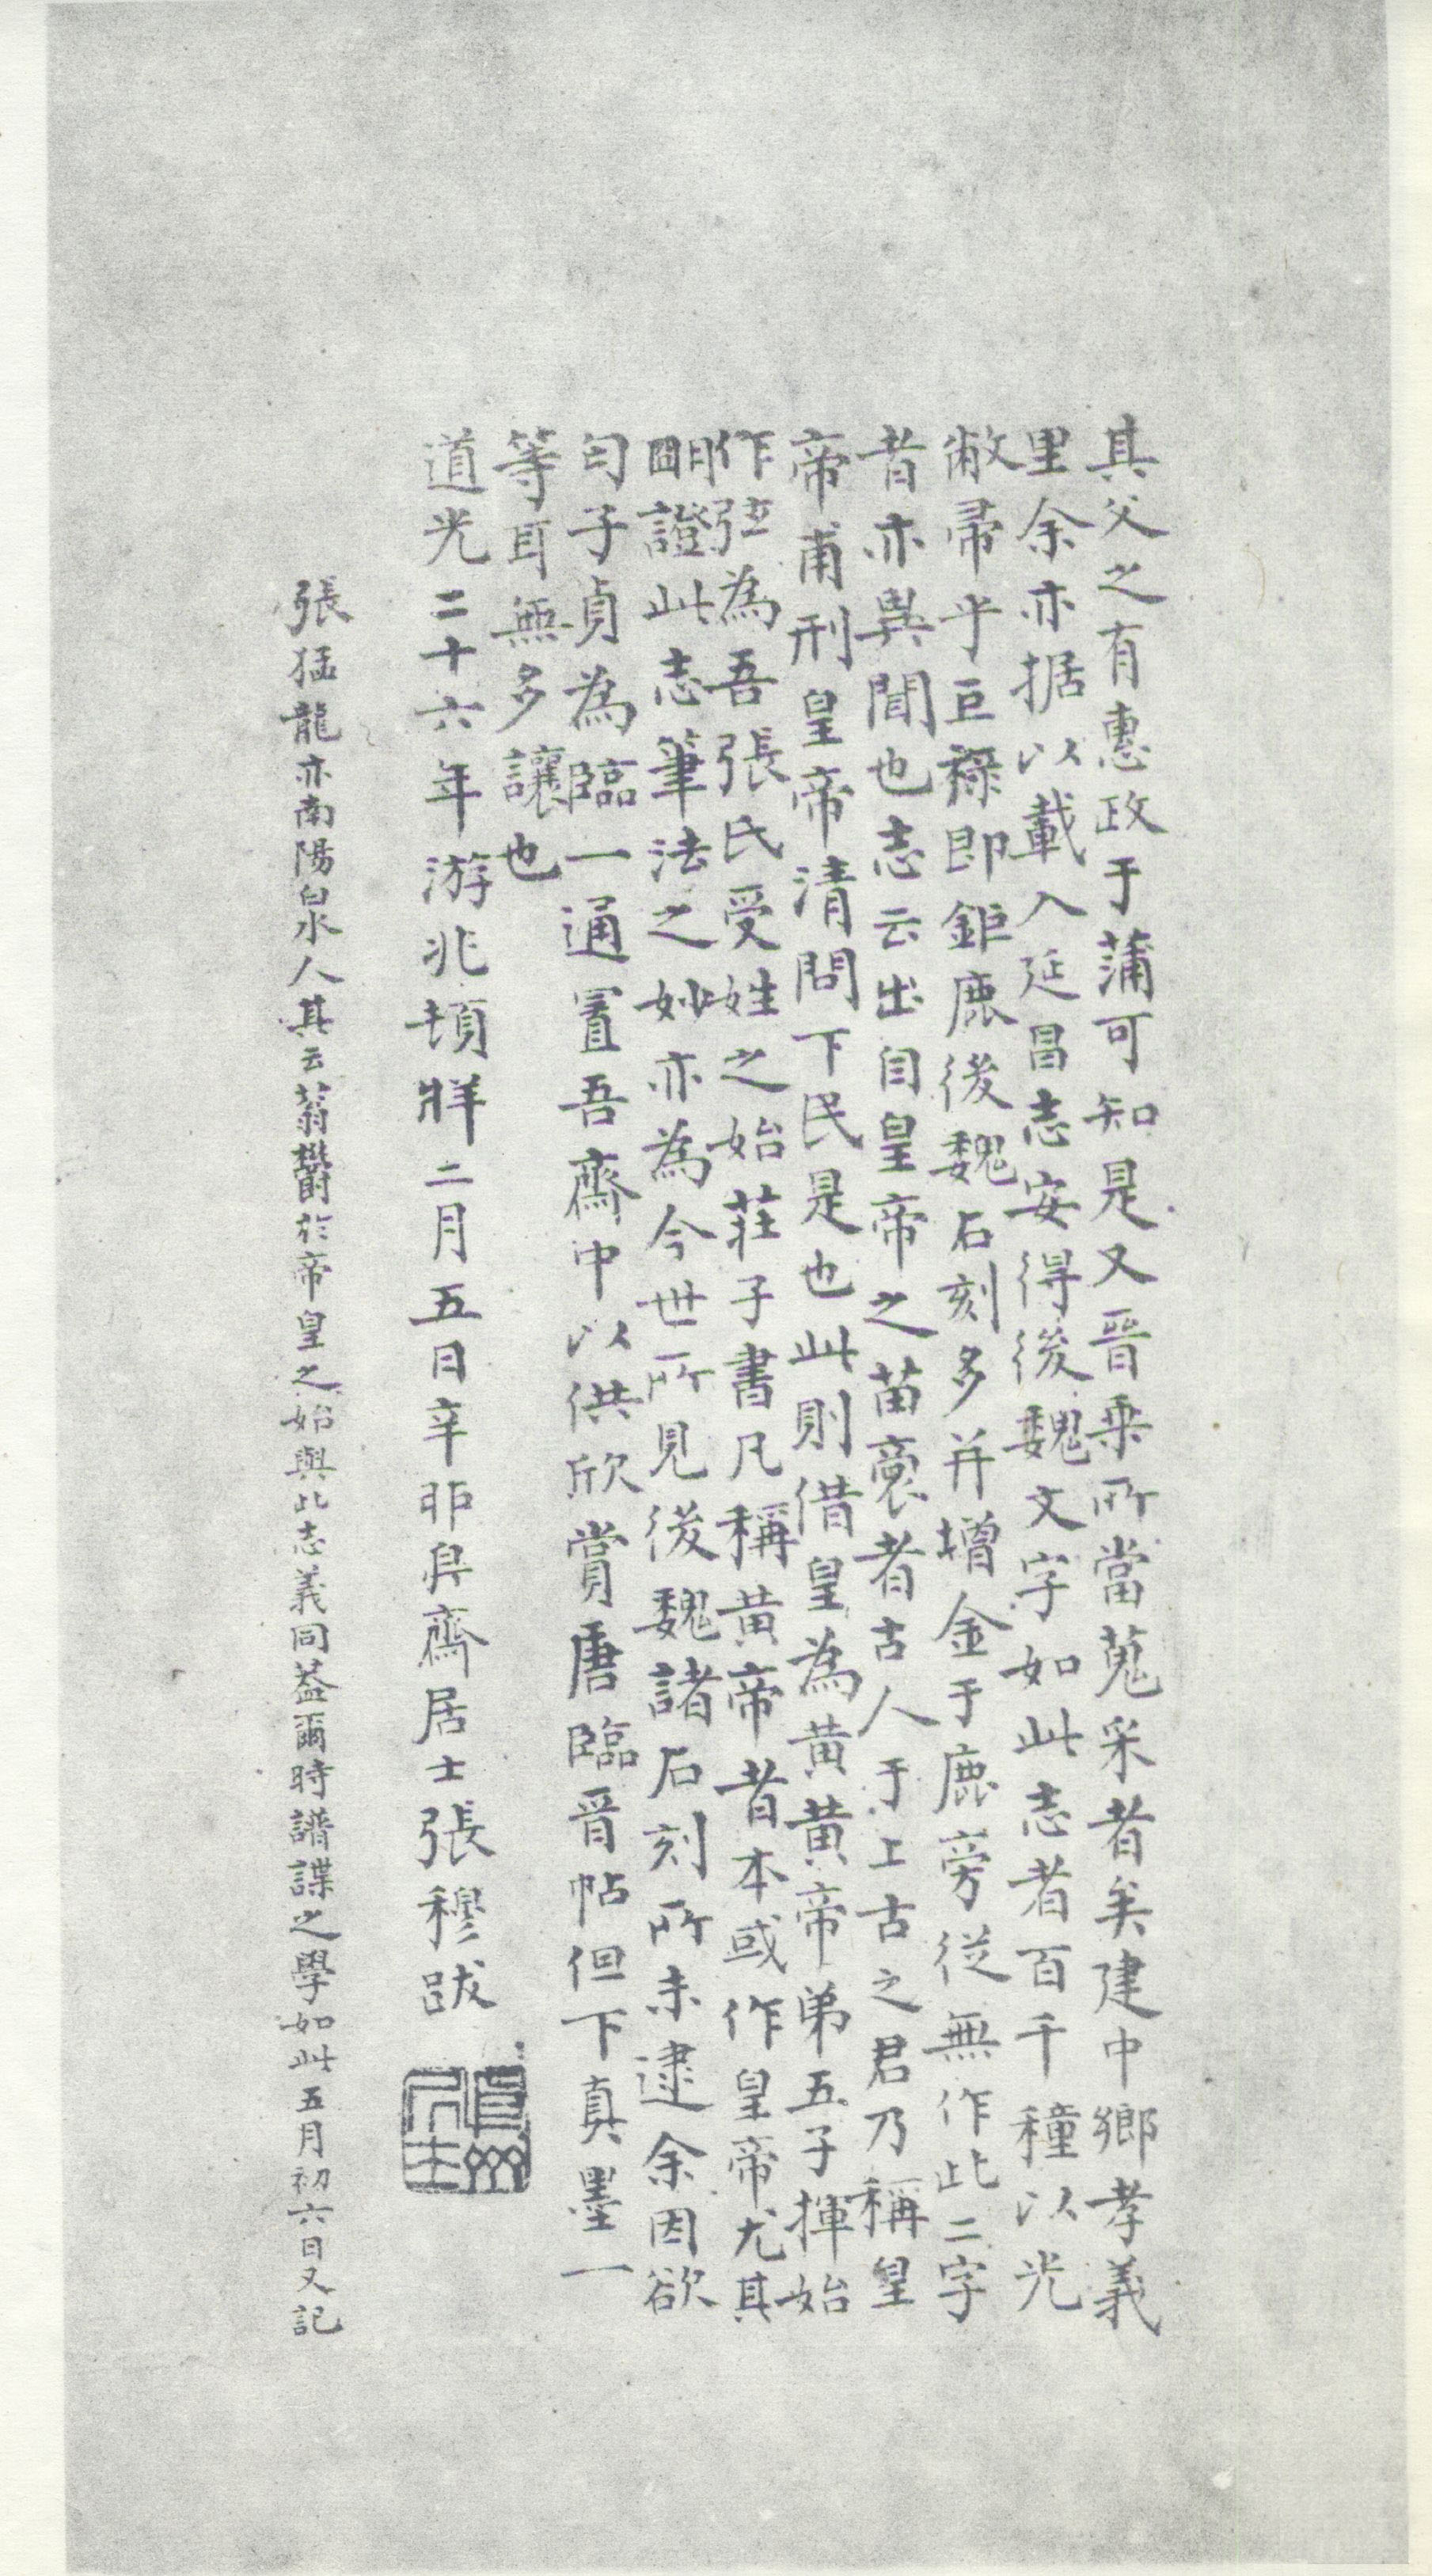 其父之有惠政于蒲可知是又晉乘所當蒐采者矣建中鄉孝義
里余亦据以載入延昌志安得後魏文字如此志者百千種以光
敝帚乎巨祿即鉅鹿後魏石刻多并增金于鹿旁從無作此二字
者亦異聞也志云出自皇帝之苗裔者古人于上古之君乃稱皇
帝甫刑皇帝清問下民是也此則借皇為黃黃帝弟五子揮始
作弦為吾張氏受姓之始莊子書凡稱黃帝者本或作皇帝尤其
朙證此志筆法之妙亦為今世所見後魏諸石刻所未逮余因欲
匄子貞為臨一通置吾齋中以供欣賞唐臨晉帖但下真墨一
等耳無多讓也
道光二十六年游兆頓牂二月五日辛卯㐆齋居士張穆跋
張猛龍亦南陽白水人其云蓊鬱於帝皇之始與此志義同蓋爾時譜諜之學如此五月初六日又記